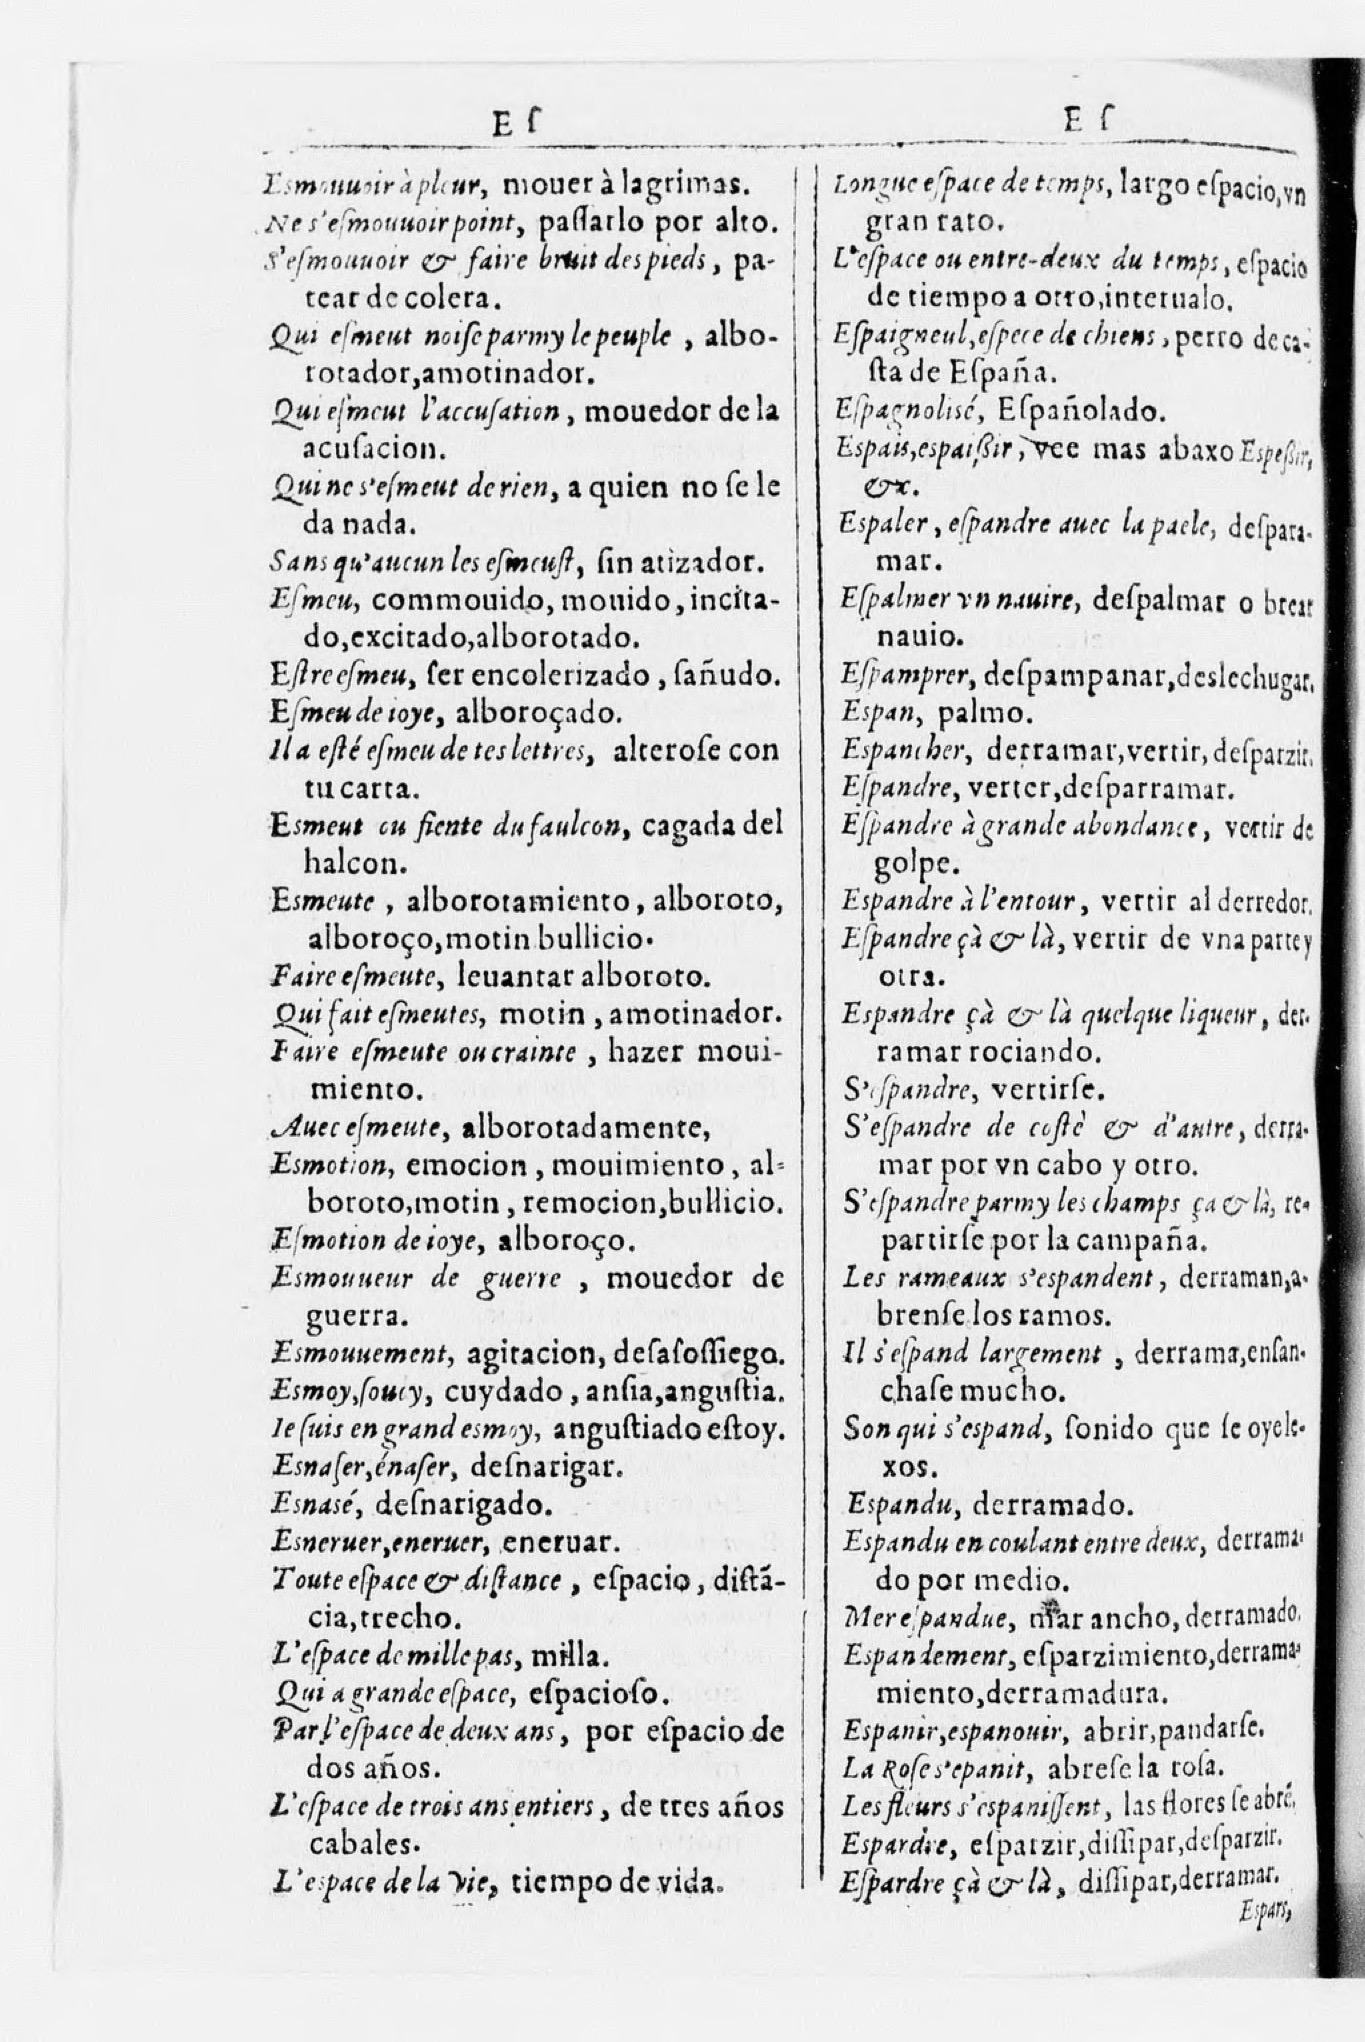 E ſ
Esmouuoir à pleur, mouer à lagrimas.
Ne s'eſmouuoir point, paſſarlo por alto.
S'eſmouuoir & faire bruit des pieds, pa-
tear de colera.
Qui eſmeut noiſe parmy le peuple, albo-
rotador, amotinador.
Qui eſmeut l'accuſation, mouedor de la
acuſacion.
Qui ne s'eſmeut de rien, a quien no ſe le
da nada.
Sans qu'aucun les eſmeuſt, ſin atizador.
Eſmeu, commouido, mouido, incita-
do, excitado, alborotado.
Eſtre eſmeu, ſer encolerizado, ſañudo.
Eſmeu de ioye, alboroçado.
Il a eſté eſmeu de tes lettres, alteroſe con
tu carta.
Esmeut ou fiente du faulcon, cagada del
halcon.
Esmeute, alborotamiento, alboroto,
alboroço, motin bullicio.
Faire eſmeute, leuantar alboroto.
Qui fait eſmeutes, motin, amotinador.
Faire eſmeute ou crainte, hazer moui-
miento.
Auec eſmeute, alborotadamente,
Esmotion, emocion, mouimiento, al-
boroto, motin, remocion, bullicio.
Eſmotion de ioye, alboroço.
Esmouueur de guerre, mouedor de
guerra.
Esmouuement, agitacion, deſaſoſſiego.
Esmoy, ſoucy, cuydado, anſia, anguſtia.
Ie ſuis en grand esmoy, anguſtiado eſtoy.
Esnaſer, énaſer, deſnarigar.
Esnasé, deſnarigado.
Esneruer, eneruer, eneruar.
Toute eſpace & diſtance, eſpacio, diſtã-
cia, trecho.
L'eſpace de mille pas, milla.
Qui a grande eſpace, eſpacioſo.
Par l'eſpace de deux ans, por eſpacio de
dos años.
L'eſpace de trois ans entiers, de tres años
cabales.
L'espace de la vie, tiempo de vida.
E ſ
Longue eſpace de temps, largo eſpacio, vn
gran rato.
L'eſpace ou entre-deux du temps, eſpacio
de tiempo a otro, interualo.
Eſpaigneul, eſpece de chiens, perro de ca-
ſta de Eſpaña.
Eſpagnoliſé, Eſpañolado.
Espais, espaiſsir, vee mas abaxo Espeſsir,
&x.
Espaler, eſpandre auec la paele, deſpara-
mar.
Eſpalmer vn nauire, deſpalmar o brear
nauio.
Eſpamprer, deſpampanar, deslechugar.
Espan, palmo.
Espancher, derramar, vertir, deſparzir.
Eſpandre, verter, deſparramar.
Eſpandre à grande abondance, vertir de
golpe.
Espandre à l'entour, vertir al derredor.
Eſpandre çà & là, vertir de vna parte y
otra.
Espandre çà & là quelque liqueur, der-
ramar rociando.
S'eſpandre, vertirſe.
S'eſpandre de coſtè & d'autre, derra-
mar por vn cabo y otro.
S'eſpandre parmy les champs ça & là, re-
partirſe por la campaña.
Les rameaux s'espandent, derraman, a-
brenſe los ramos.
Il s'eſpand largement, derrama, enſan-
chaſe mucho.
Son qui s'espand, ſonido que ſe oye le-
xos.
Espandu, derramado.
Espandu en coulant entre deux, derrama-
do por medio.
Mer eſpandue, mar ancho, derramado.
Espandement, eſparzimiento, derrama-
miento, derramadura.
Espanir, espanouir, abrir, pandarſe.
La Roſe s'epanit, abreſe la roſa.
Les fleurs s'espaniſſent, las flores ſe abrẽ.
Espardre, eſparzir, diſſipar, deſparzir.
Eſpardre çà & là, diſſipar, derramar.
Espars,